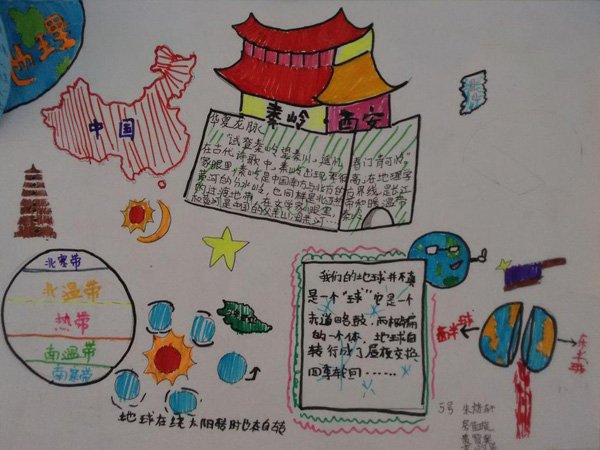 地理
中国
秦岭 西安
华夏龙脉
"试登秦岭望秦川,遥忆
春门
在古代诗歌中,秦岭出现率很高,在地理学
家眼里,秦岭是中国南方与北方的
界线,是长江
黄河的分水岭,也同样是北亚热带和暖温带
的过渡地带,在文学家眼里,
秦岭
和黄河是中国的父亲山
北寒带
北温带
热带
南温带
南寒带
我们的地球并不真
是一个"球"它是一个
赤道略鼓,两极略扁
的一个体,地球自
转行成了昼夜交换
四季轮回……
西半球
东半球
地球在绕太阳转时也在自转
5号